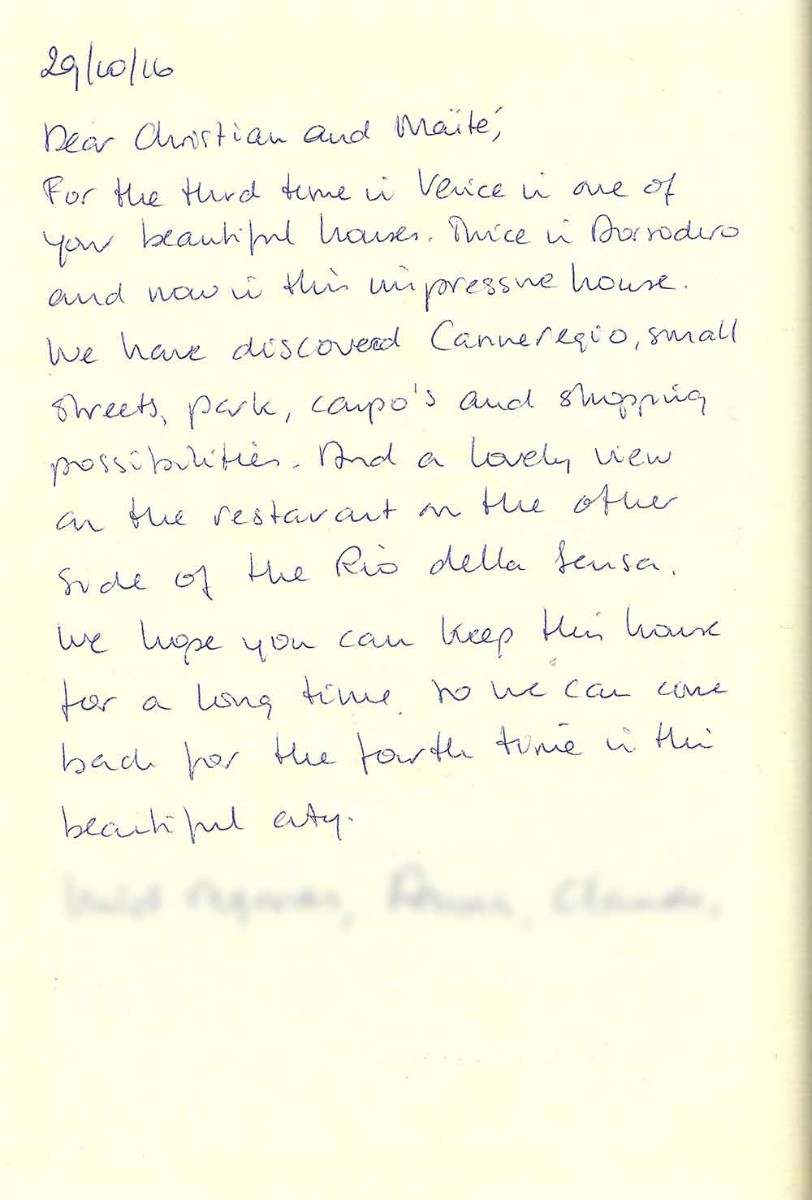 29/10/16
Dear Christian and Maïté,
For the third time in Venice in one of
your beautiful houses. Twice in Dorsoduro
and now in this impressive house.
We have discovered Canneregio, small
streets, park, campo's and shopping
possibilities. And a lovely view
on the restaurant on the other
side of the Rio della Sensa.
We hope you can keep this house
for a long time so we can come
back for the fourth time in this
beautiful city.